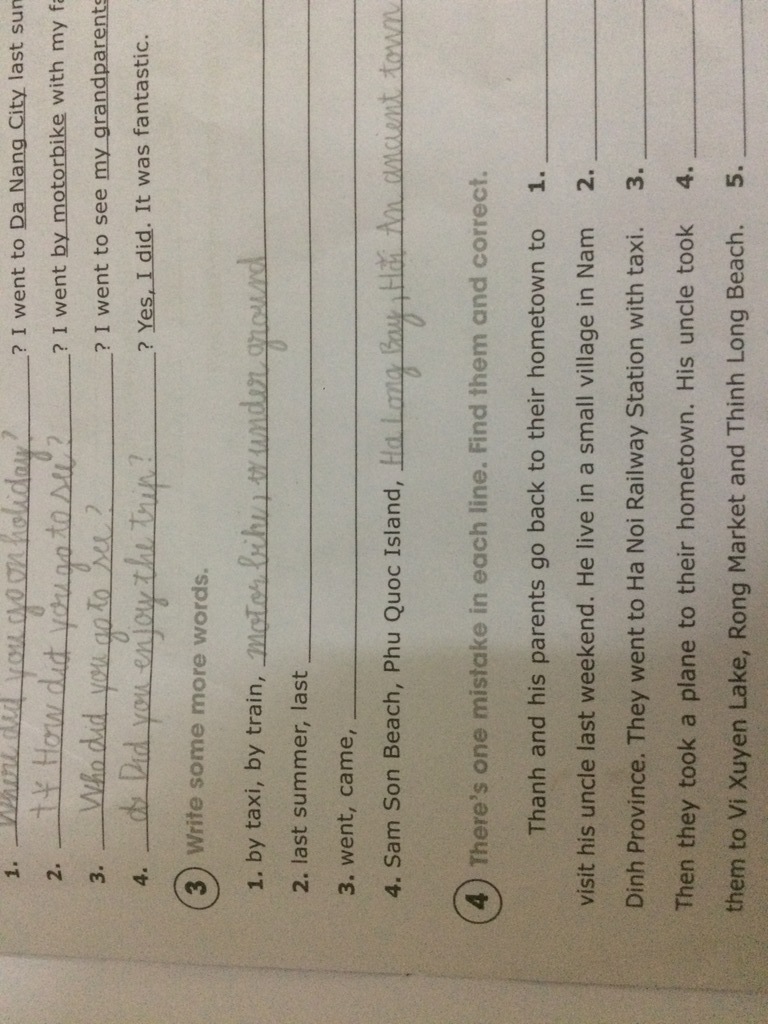 1. Where did you go on holiday? ? I went to Da Nang City last sum
2. How did you go to see? ? I went by motorbike with my fa
3. Who did you go to see? ? I went to see my grandparents
4. Did you enjoy the trip? ? Yes, I did. It was fantastic.
3 Write some more words.
1. by taxi, by train, motorbike, underground
2. last summer, last
3. went, came,
4. Sam Son Beach, Phu Quoc Island, Ha Long Bay, Hội An ancient town
4 There's one mistake in each line. Find them and correct.
Thanh and his parents go back to their hometown to 1.
visit his uncle last weekend. He live in a small village in Nam 2.
Dinh Province. They went to Ha Noi Railway Station with taxi. 3.
Then they took a plane to their hometown. His uncle took 4.
them to Vi Xuyen Lake, Rong Market and Thinh Long Beach. 5.